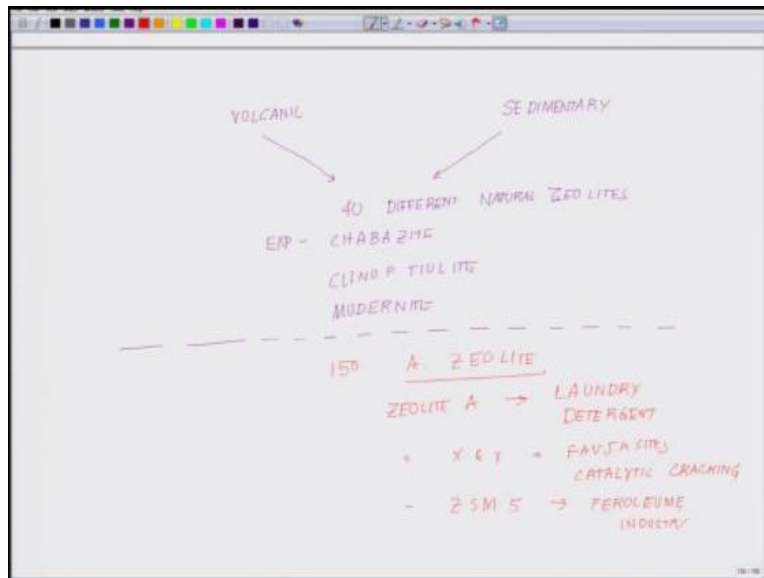 VOLCANIC
SEDIMENTARY
40 DIFFERENT NATURAL ZEOLITES
EXP - CHABAZITE
CLINOPTIULITE
MODERNITE
150 A. ZEOLITE
ZEOLITE A → LAUNDRY
DETERGENT
" X & Y → FAUJASITES
CATALYTIC CRACKING
- ZSM 5 → PEROLEUME
INDUSTRY